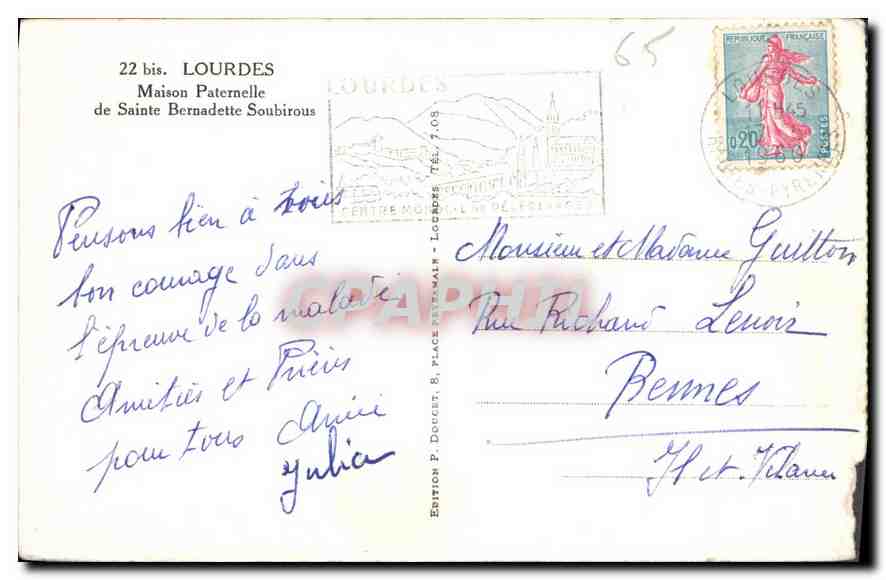 22 bis. LOURDES
Maison Paternelle
de Sainte Bernadette Soubirous
65
LOURDES
CENTRE MONDIAL DE PÈLERINAGES
REPUBLIQUE FRANÇAISE
0,20
POSTES
LOURDES
1960
Pensons bien à
bon courage dans
l'épreuve de la maladie
Amitiés et Prières
pour tous Annie
Julia
EDITION P. DOUCET, 8, PLACE PEYRAMALE - LOURDES, TÉL. 7.08
Monsieur et Madame Guitton
Rue Richard Lenoir
Rennes
Il et Vilaine
CPAPHIL